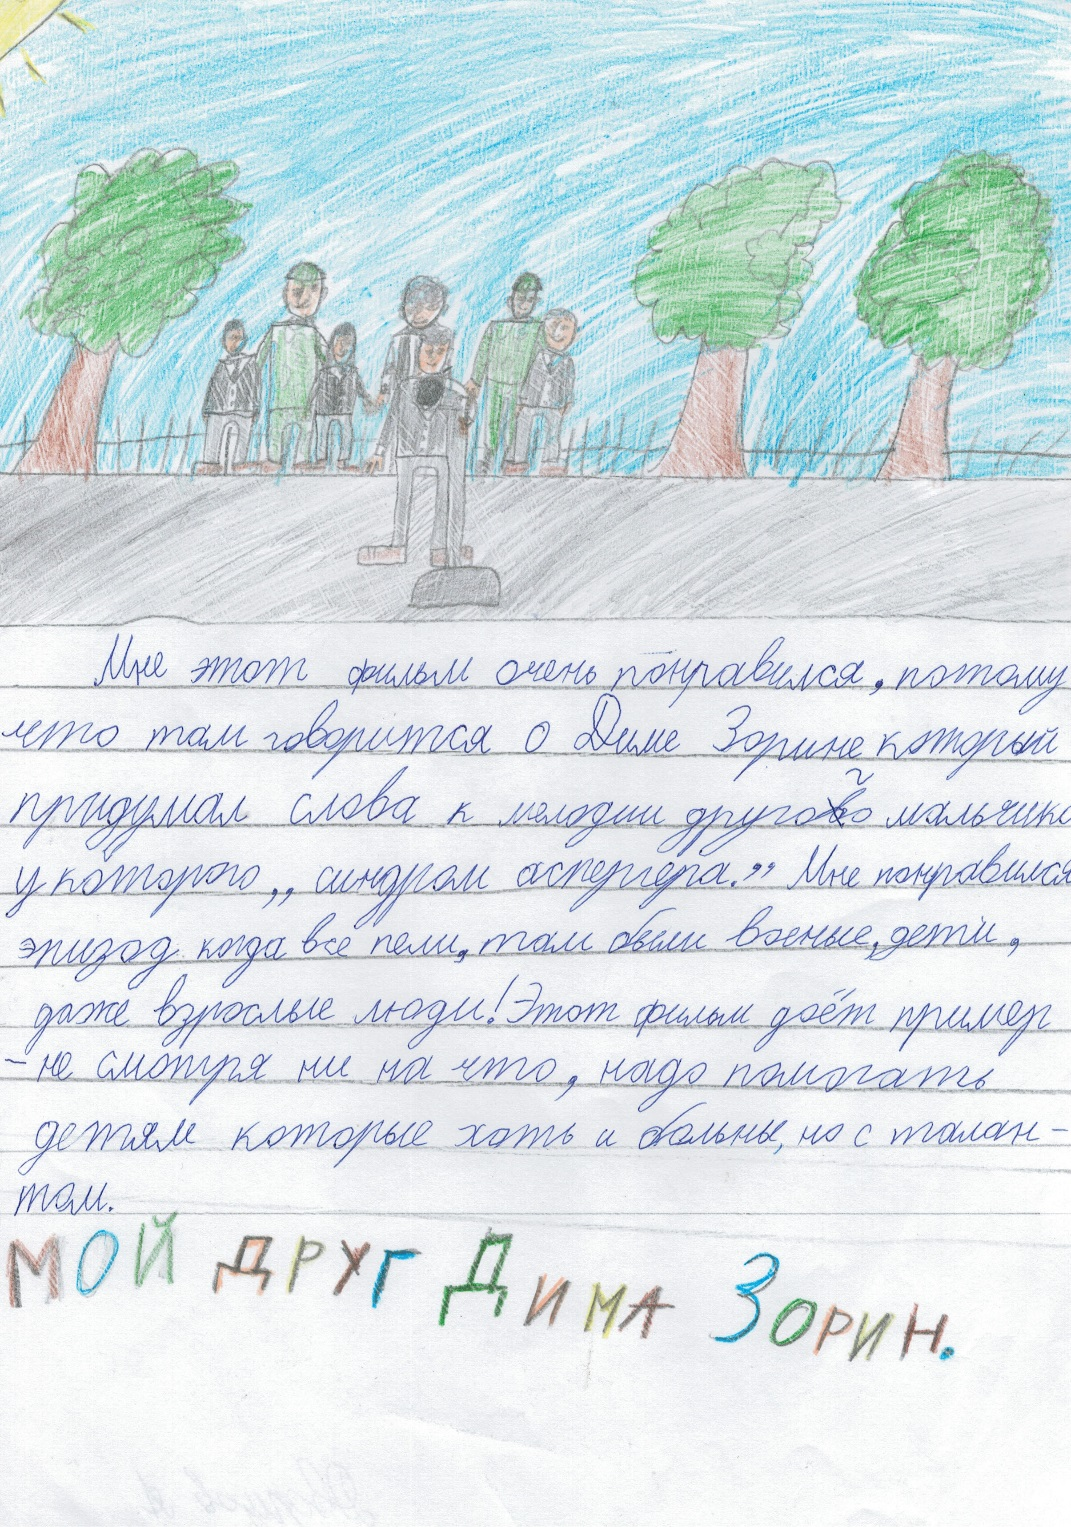 Мне этот фильм очень понравился, потому
что там говорится о Диме Зорине который
придумал слова к мелодии другого мальчика
у которого „синдром аспергера.” Мне понравился
эпизод когда все пели, там были военые, дети,
даже взрослые люди! Этот фильм даёт пример
- не смотря ни на что, надо помогать
детям которые хоть и больны, но с талан-
том.
МОЙ ДРУГ ДИМА ЗОРИН.